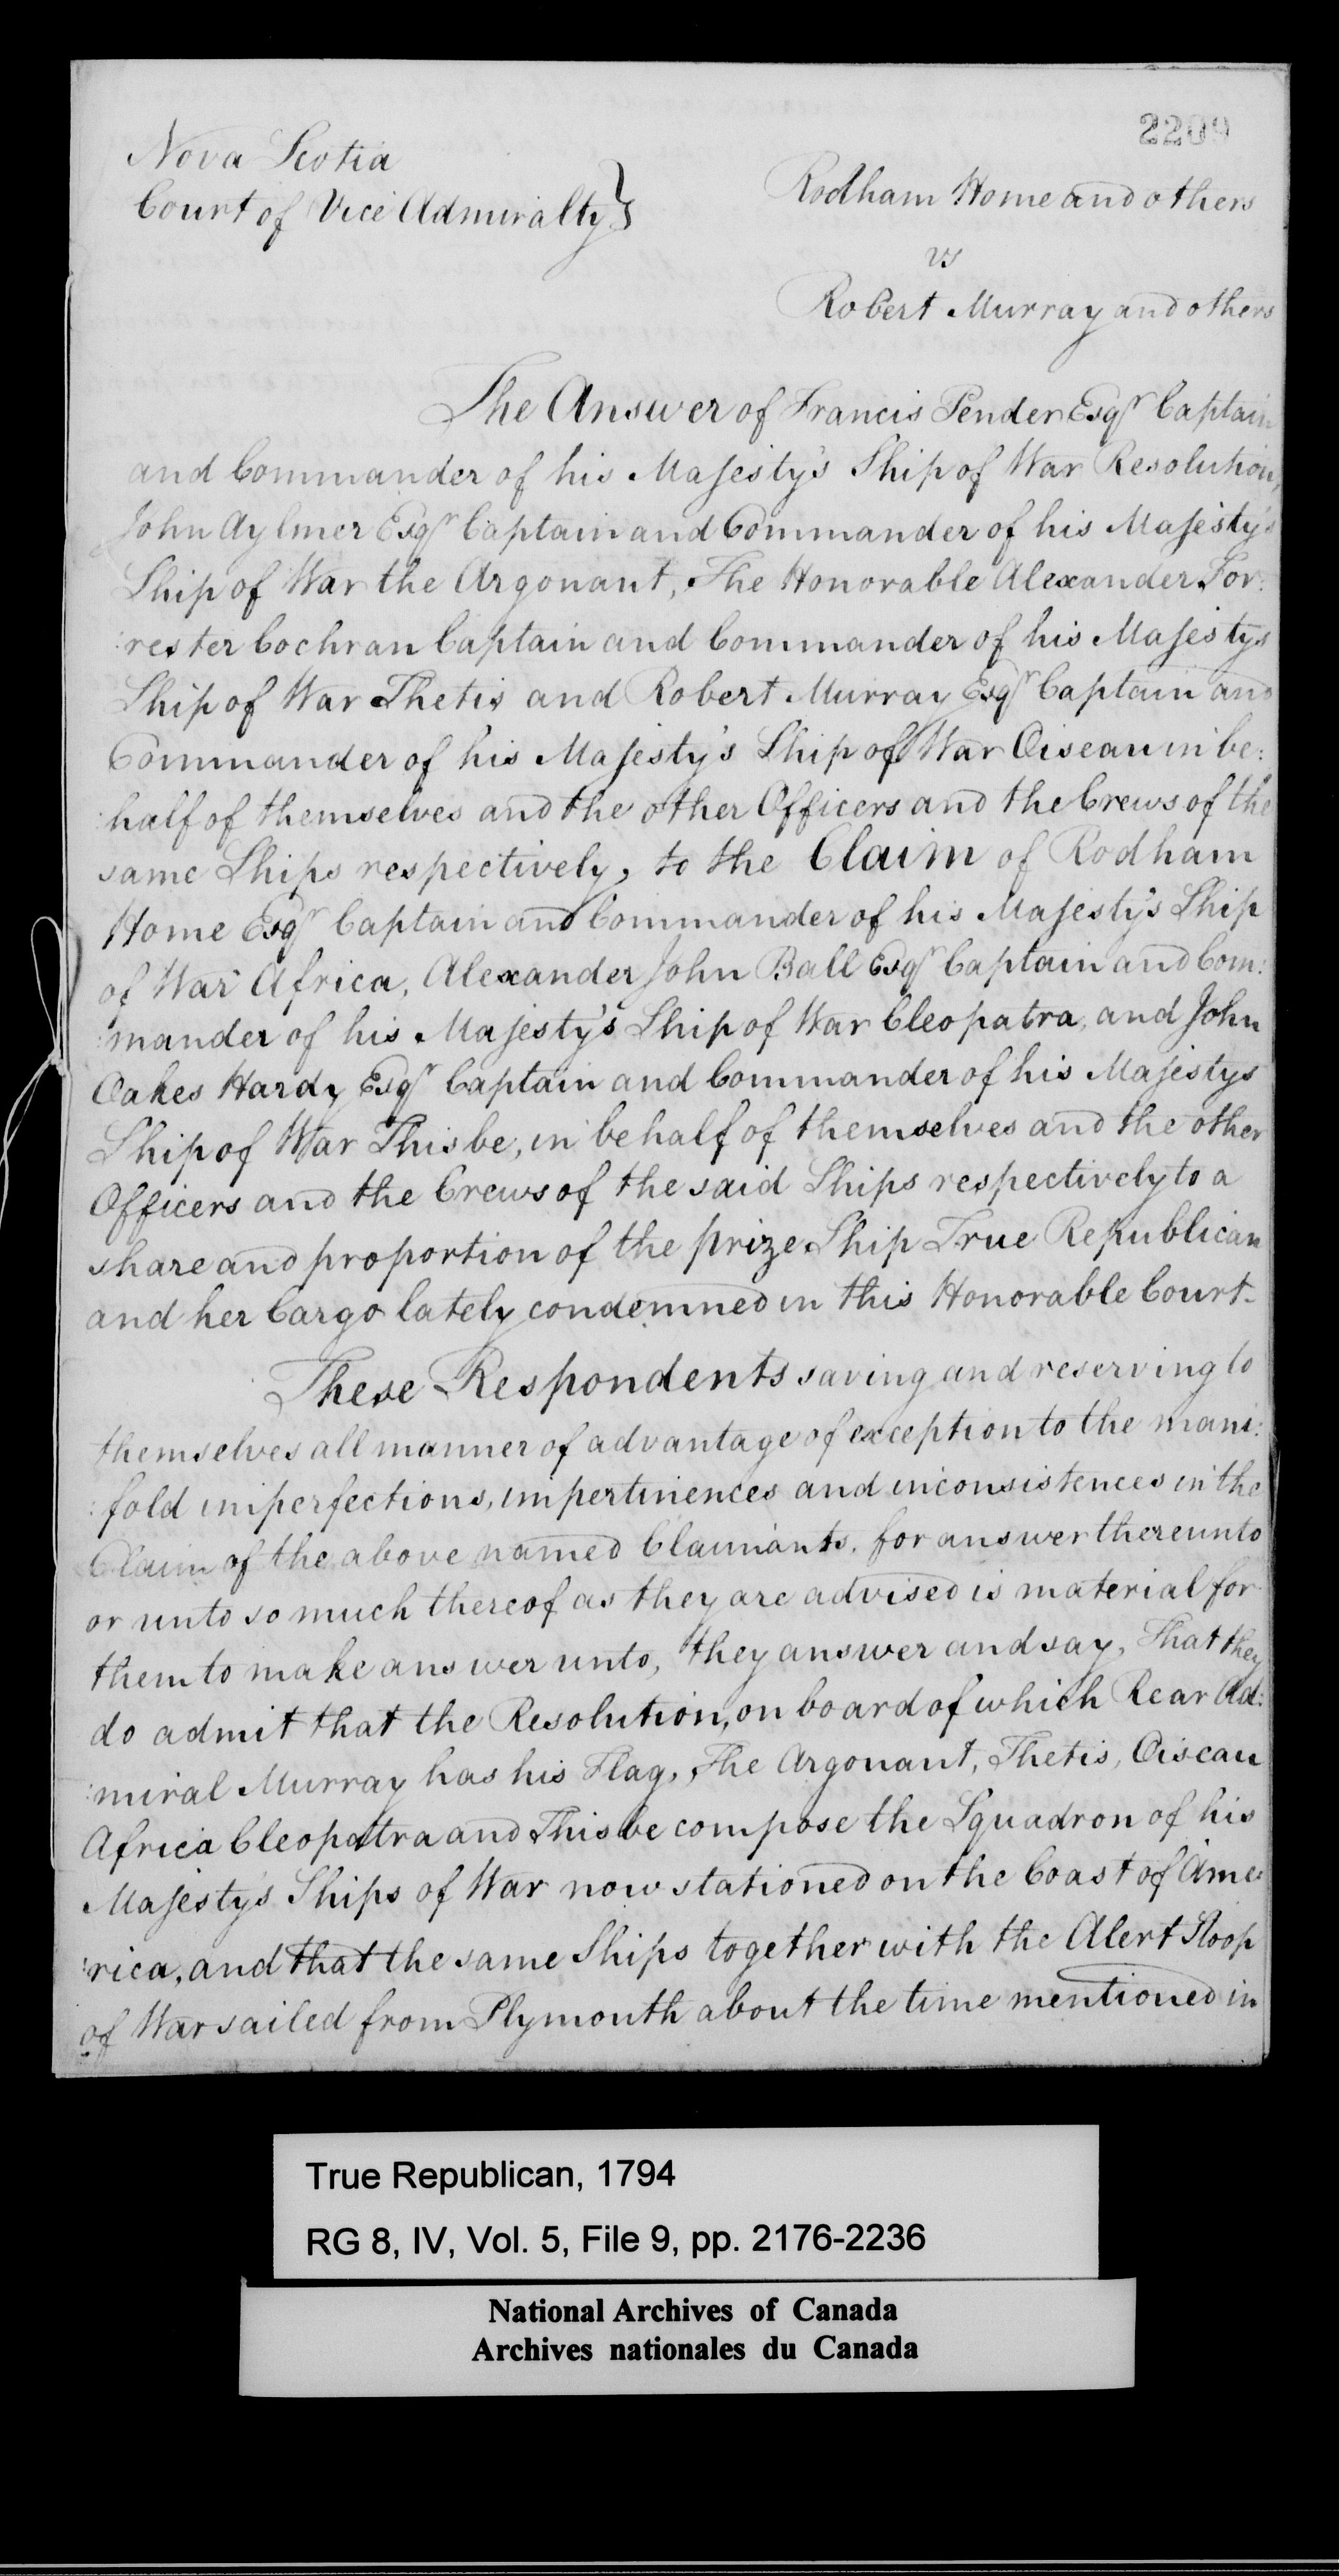 2209
Nova Scotia
Court of Vice Admiralty }
Rodham Home and others
vs
Robert Murray and others
The Answer of Francis Pender Esqr Captain
and Commander of his Majesty's Ship of War Resolution,
John Aylmer Esqr Captain and Commander of his Majesty's
Ship of War the Argonant, The Honorable Alexander For:
:rester Cochran Captain and Commander of his Majestys
Ship of War Thetis and Robert Murray Esqr Captain and
Commander of his Majesty's Ship of War Oiseau in be:
:half of themselves and the other Officers and the Crews of the
same Ships respectively, to the Claim of Rodham
Home Esqr Captain and Commander of his Majesty's Ship
of War Africa, Alexander John Ball Esqr Captain and Com:
:mander of his Majesty's Ship of War Cleopatra, and John
Oakes Hardy Esqr Captain and Commander of his Majestys
Ship of War Thisbe, in behalf of themselves and the other
Officers and the Crews of the said Ships respectively to a
share and proportion of the prize Ship True Republican
and her Cargo lately condemned in this Honorable Court-
These Respondents saving and reserving to
themselves all manner of advantage of exception to the mani:
:fold imperfections, impertinences and inconsistences in the
Claim of the above named Claimants, for answer thereunto
or unto so much thereof as they are advised is material for
them to make answer unto, they answer and say, That they
do admit that the Resolution, on board of which Rear Ad:
:miral Murray has his Flag, The Argonant, Thetis, Oiseau
Africa Cleopatra and Thisbe compose the Squadron of his
Majesty's Ships of War now stationed on the Coast of Ame:
:rica, and that the same Ships together with the Alert Sloop
of War sailed from Plymouth about the time mentioned in
True Republican, 1794
RG 8, IV, Vol. 5, File 9, pp. 2176-2236
National Archives of Canada
Archives nationales du Canada